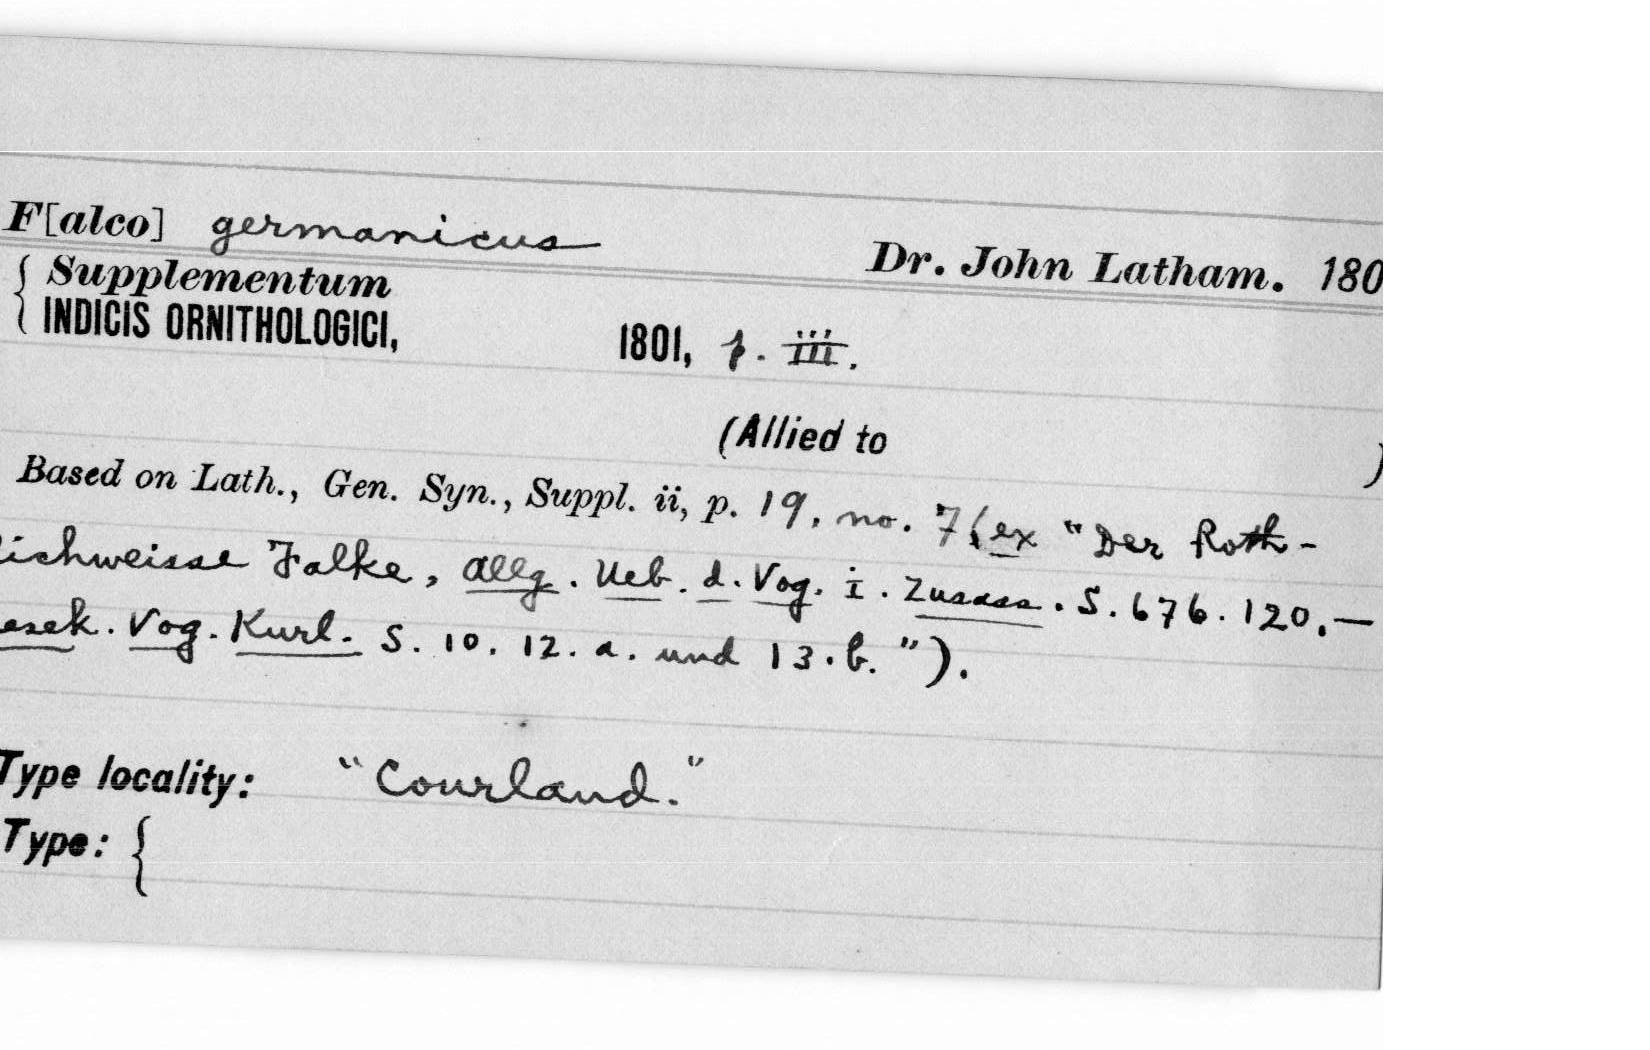 F[alco] germanicus
Dr. John Latham. 180
Supplementum
INDICIS ORNITHOLOGICI, 1801, p. iii.
(Allied to )
Based on Lath., Gen. Syn., Suppl. ii, p. 19, no. 7 (ex "Der Roth-
lichweisse Falke, Allg. Ueb. d. Vog. i. Zusass. S. 676. 120.—
esek. Vog. Kurl. S. 10. 12. a. und 13. b.").
Type locality: "Courland."
Type: {